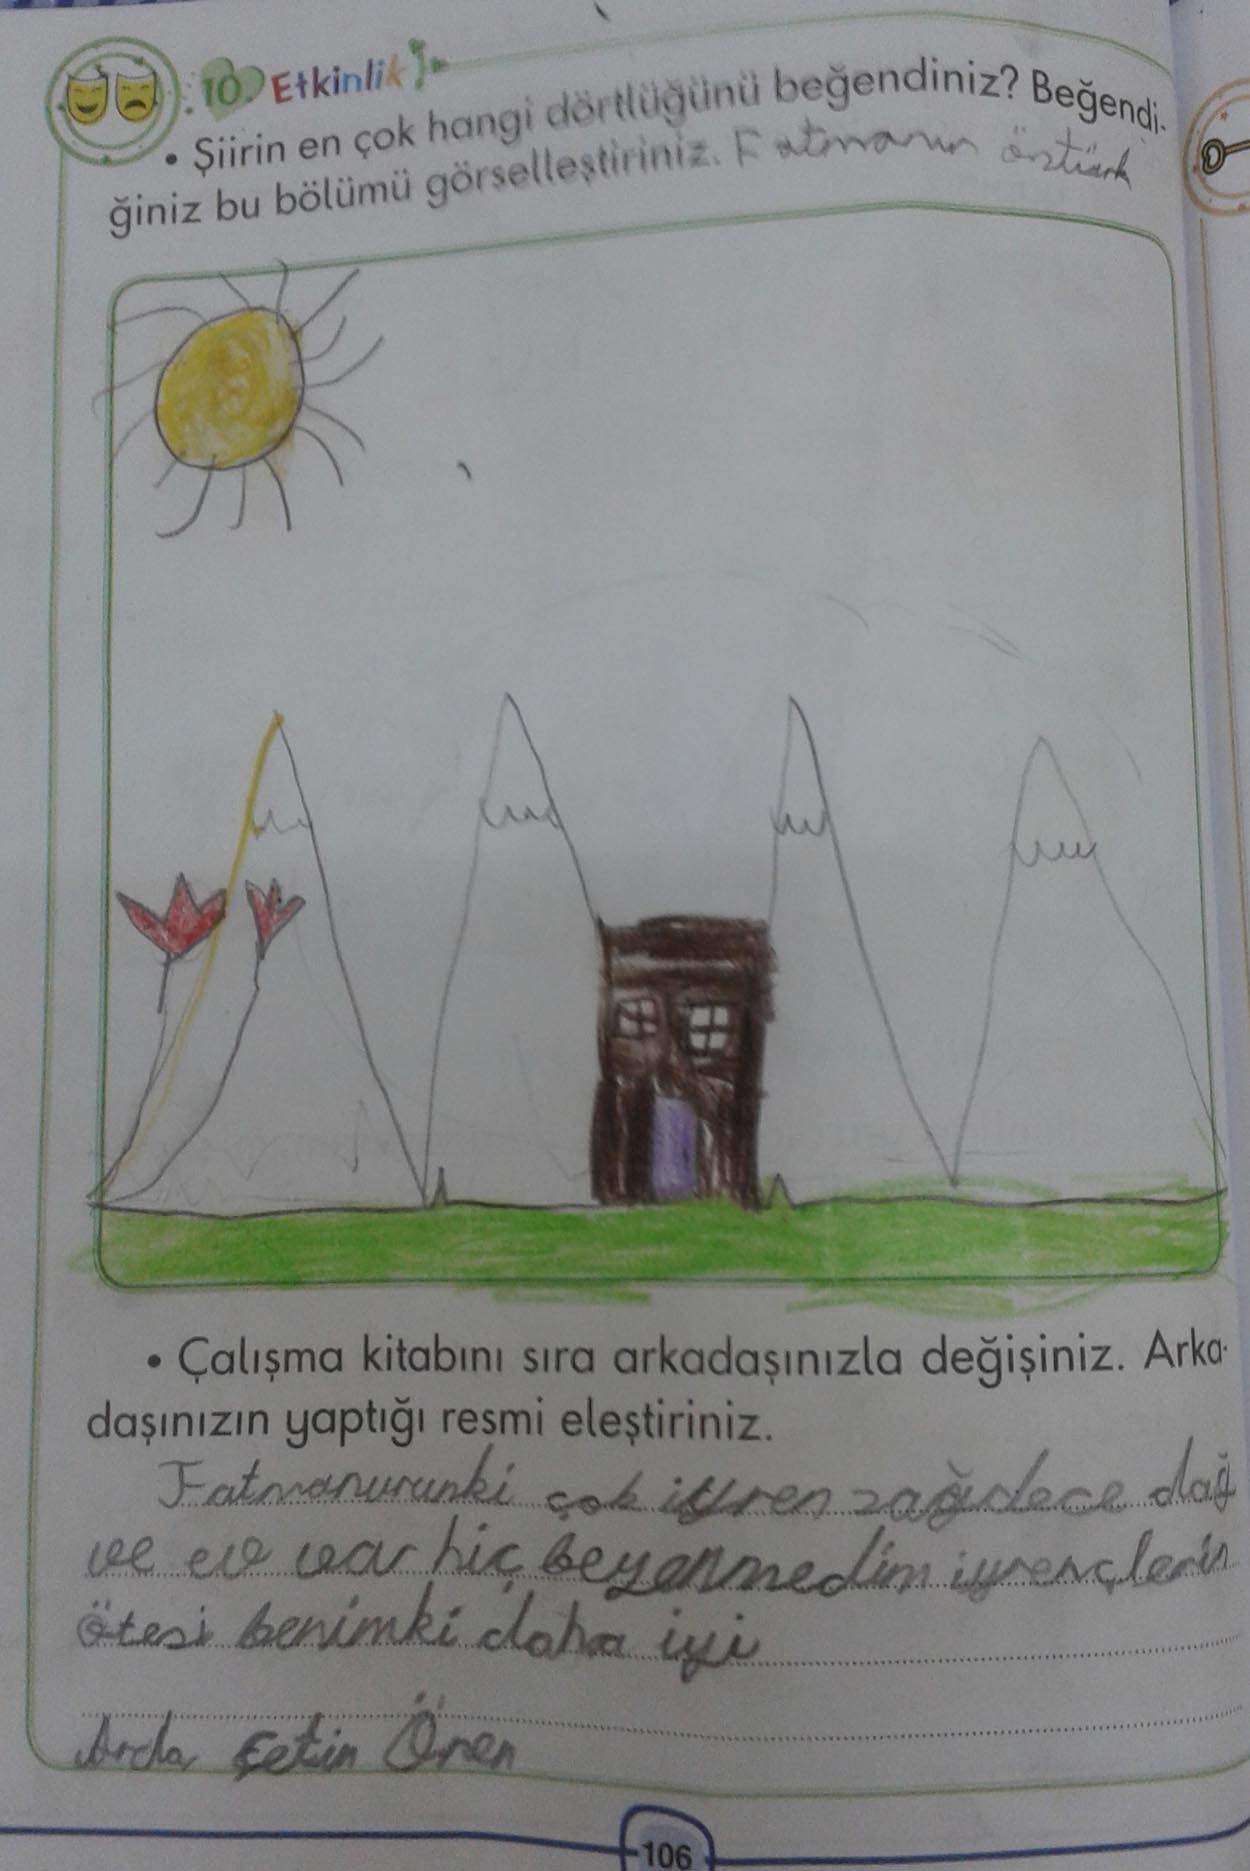 10. Etkinlik
• Şiirin en çok hangi dörtlüğünü beğendiniz? Beğendi-
ğiniz bu bölümü görselleştiriniz. Fatmanur öztürk
• Çalışma kitabını sıra arkadaşınızla değişiniz. Arka-
daşınızın yaptığı resmi eleştiriniz.
Fatmanurunki çok iğren sağdece dağ
ve ev var hiç beyenmedim iyrençlerin
ötesi benimki daha iyi
Arda Çetin Ören
106